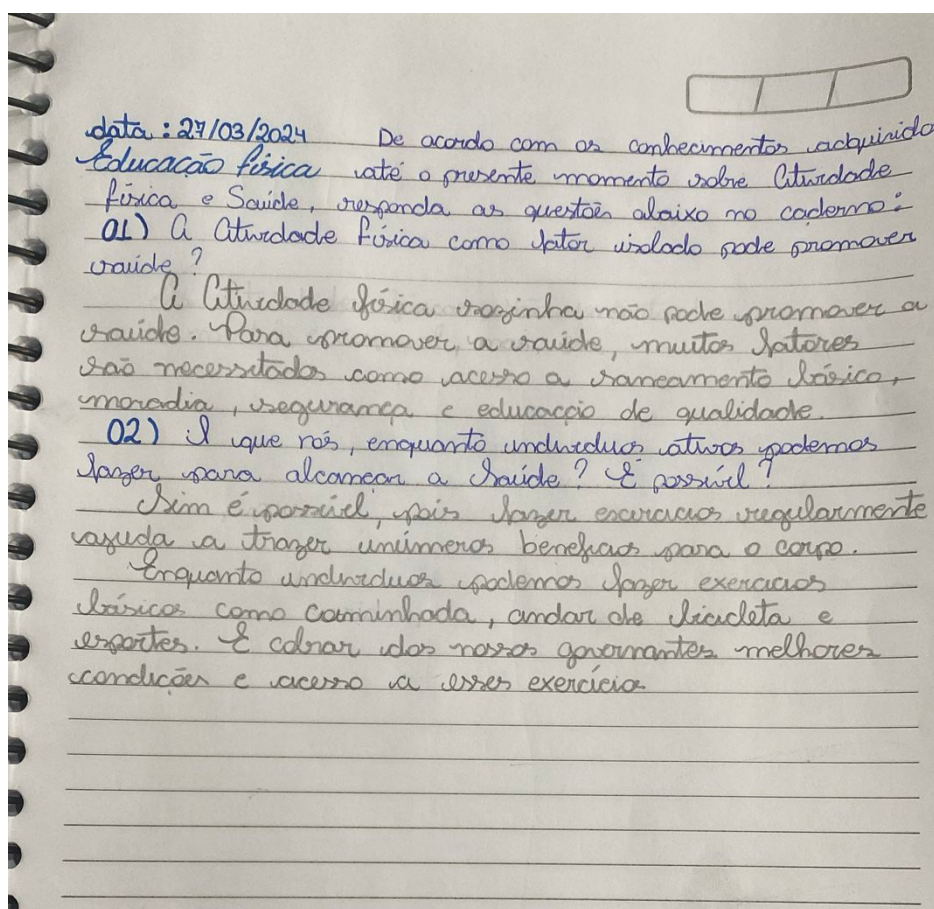 data: 27/03/2024 De acordo com os conhecimentos adquirido
Educação física até o presente momento sobre Atividade
física e Saúde, responda as questões abaixo no caderno:
01) A Atividade Física como fator isolado pode promover
saúde?
A Atividade física sozinha não pode promover a
saúde. Para promover a saúde, muitos fatores
são necessitados como acesso a saneamento básico,
moradia, segurança e educacção de qualidade.
02) O que nós, enquanto individuos ativos podemos
fazer para alcançar a Saúde? É possível?
Sim é possível, pois fazer exercicios regularmente
ajuda a trazer inúmeros beneficios para o corpo.
Enquanto individuos podemos fazer exercicios
básicos como caminhada, andar de bicicleta e
esportes. E cobrar dos nossos governantes melhores
condições e acesso a esses exercícios